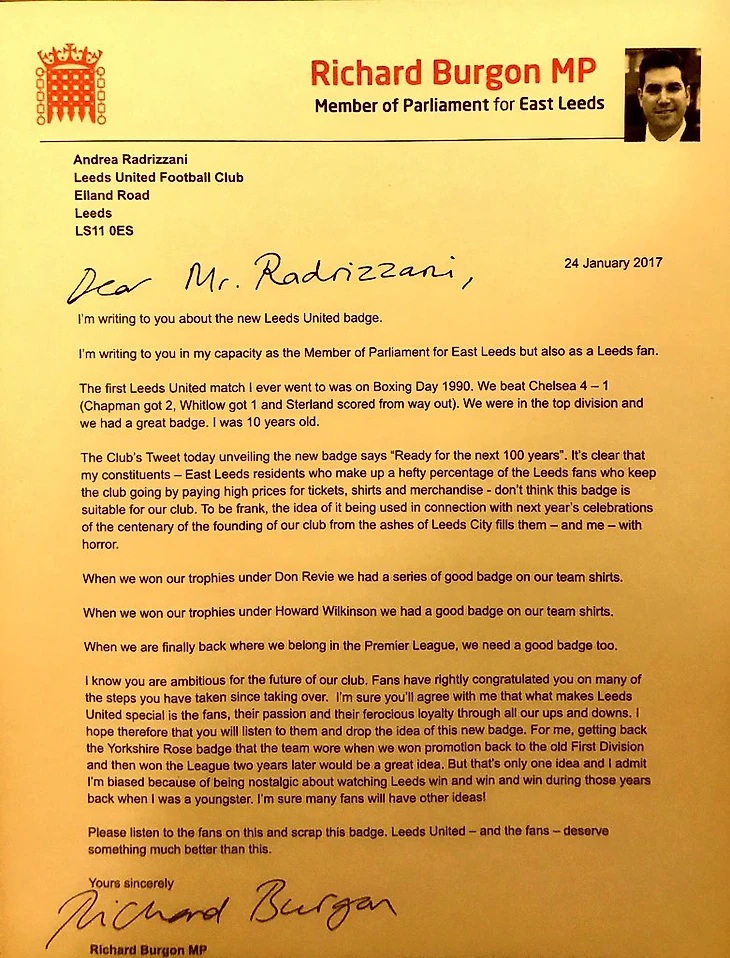 Richard Burgon MP
Member of Parliament for East Leeds
Andrea Radrizzani
Leeds United Football Club
Elland Road
Leeds
LS11 0ES
24 January 2017
Dear Mr. Radrizzani,
I'm writing to you about the new Leeds United badge.
I'm writing to you in my capacity as the Member of Parliament for East Leeds but also as a Leeds fan.
The first Leeds United match I ever went to was on Boxing Day 1990. We beat Chelsea 4 – 1
(Chapman got 2, Whitlow got 1 and Sterland scored from way out). We were in the top division and
we had a great badge. I was 10 years old.
The Club's Tweet today unveiling the new badge says “Ready for the next 100 years”. It's clear that
my constituents – East Leeds residents who make up a hefty percentage of the Leeds fans who keep
the club going by paying high prices for tickets, shirts and merchandise - don't think this badge is
suitable for our club. To be frank, the idea of it being used in connection with next year's celebrations
of the centenary of the founding of our club from the ashes of Leeds City fills them – and me – with
horror.
When we won our trophies under Don Revie we had a series of good badge on our team shirts.
When we won our trophies under Howard Wilkinson we had a good badge on our team shirts.
When we are finally back where we belong in the Premier League, we need a good badge too.
I know you are ambitious for the future of our club. Fans have rightly congratulated you on many of
the steps you have taken since taking over.  I'm sure you'll agree with me that what makes Leeds
United special is the fans, their passion and their ferocious loyalty through all our ups and downs. I
hope therefore that you will listen to them and drop the idea of this new badge. For me, getting back
the Yorkshire Rose badge that the team wore when we won promotion back to the old First Division
and then won the League two years later would be a great idea. But that's only one idea and I admit
I'm biased because of being nostalgic about watching Leeds win and win and win during those years
back when I was a youngster. I'm sure many fans will have other ideas!
Please listen to the fans on this and scrap this badge. Leeds United – and the fans – deserve
something much better than this.
Yours sincerely
Richard Burgon
Richard Burgon MP